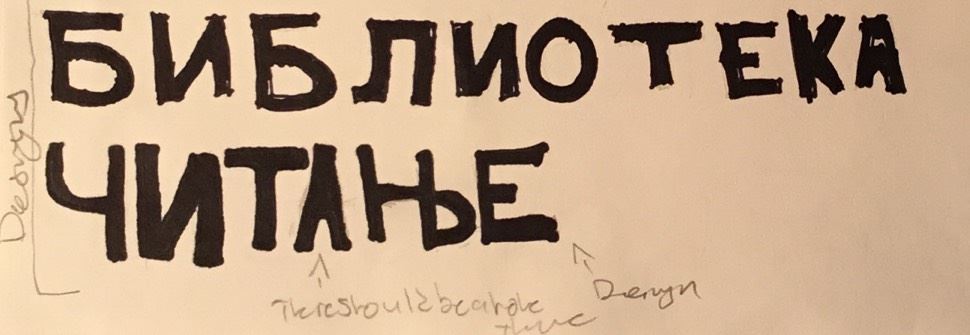 БИБЛИОТЕКА
ЧИТАЊЕ
Design
There should be a hole
there